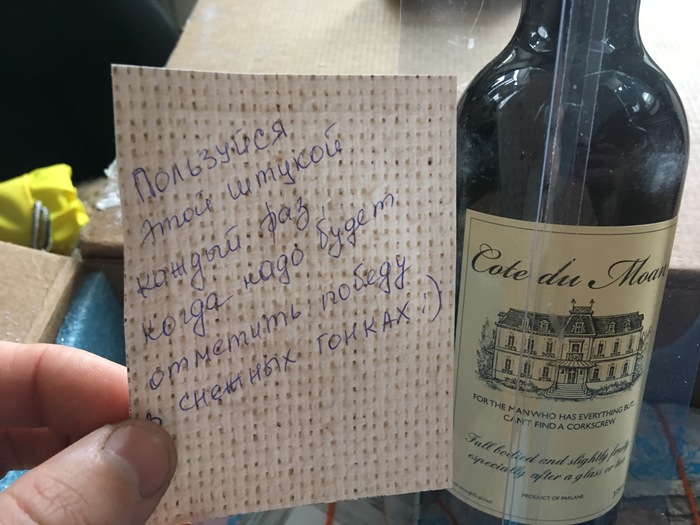 Пользуйся
этой штукой
каждый раз,
когда надо будет
отметить победу
в снежных гонках :)
Cote du Moan
FOR THE MAN WHO HAS EVERYTHING BUT...
CAN'T FIND A CORKSCREW
Full bodied and slightly fruity
especially after a glass or two
PRODUCT OF PAALANE